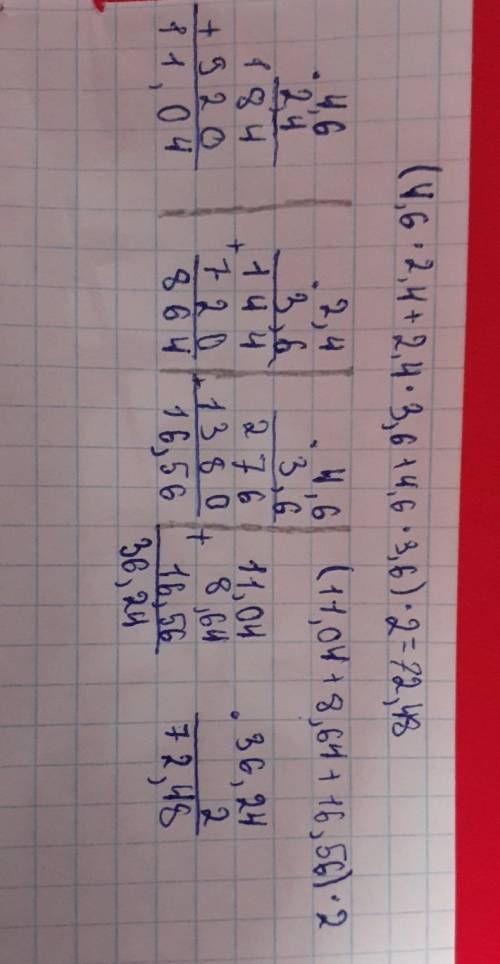 (4,6·2,4+2,4·3,6+4,6·3,6)·2=72,48
(11,04+8,64+16,56)·2
4,6
·
2,4
184
+
920
11,04
2,4
·
3,6
144
+
720
864
4,6
·
3,6
276
+
1380
16,56
11,04
+
8,64
16,56
36,24
36,24
·
2
72,48